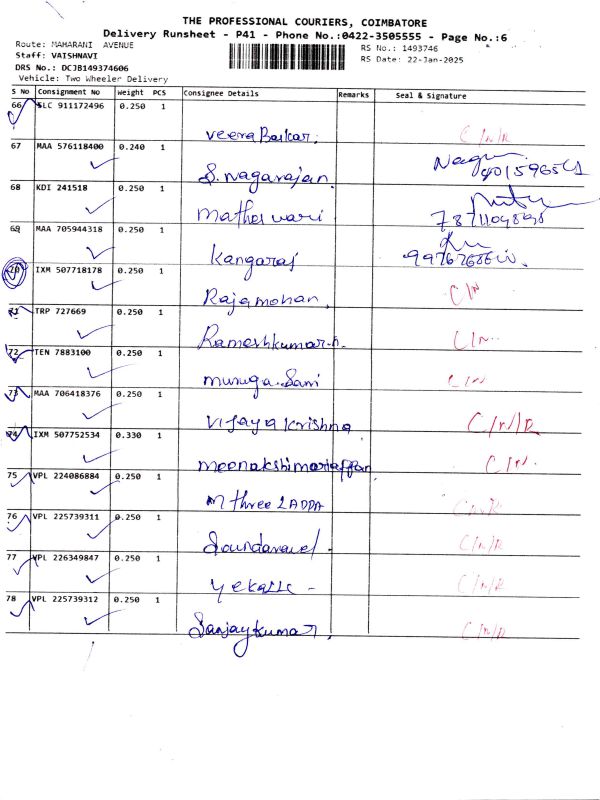 THE PROFESSIONAL COURIERS, COIMBATORE
Delivery Runsheet - P41 - Phone No.:0422-3505555 - Page No.:6
Route: MAHARANI AVENUE
RS No.: 1493746
Staff: VAISHNAVI
RS Date: 22-Jan-2025
DRS No.: DCJB149374606
Vehicle: Two Wheeler Delivery
S No Consignment No Weight PCS Consignee Details Remarks Seal & Signature
66 SLC 911172496 0.250 1
Veera Baskar. C/N/R
67 MAA 576118400 0.240 1
S. nagarajan.
68 KDI 241518 0.250 1
Matheswari
69 MAA 705944318 0.250 1
Kangaraj
70 IXM 507718178 0.250 1
Rajamohan. C/N
71 TRP 727669 0.250 1
Rameshkumar.n. C/N..
72 TEN 7883100 0.250 1
muruga.Sami C/N
73 MAA 706418376 0.250 1
Vijaya krishna C/N/R
74 IXM 507752534 0.330 1
meenakshimariappan C/N.
75 VPL 224086884 0.250 1
M three LADDA C/N/R
76 VPL 225739311 0.250 1
Soundaravel. C/N/R
77 VPL 226349847 0.250 1
C/N/R
78 VPL 225739312 0.250 1
Sanjaykumar. C/N/R